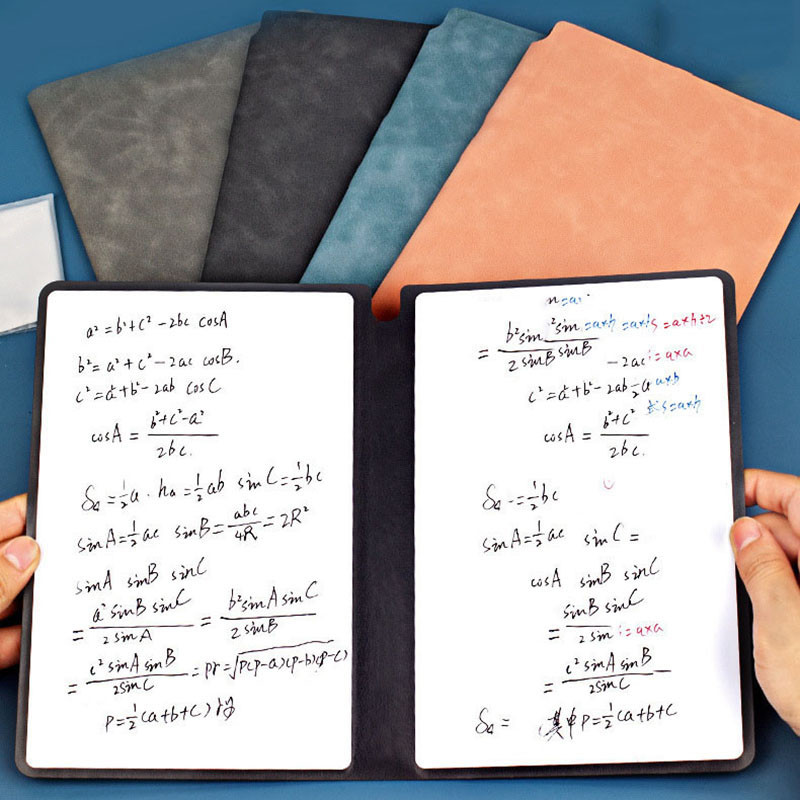 a² = b²+c² - 2bc cosA
b² = a²+c² - 2ac cosB.
c² = a²+b² - 2ab cosC
cosA = (b²+c²-a²)/2bc.
S△ = ½a·ha = ½ab sinC = ½bc
sinA = ½ac sinB = abc/4R = 2R²
sinA sinB sinC
= a² sinB sinC/2sinA = b² sinA sinC/2sinB
= c² sinA sinB/2sinC = pr = √p(p-a)(p-b)(p-c)
P = ½(a+b+c)
= b² sin sin/2 sinB sinB =a×h =a×h s=a×h÷2
-2ac =a×a
c² = a²+b² - 2ab a×b
cosA = b²+c²/2bc. s=a×h
S△ = ½bc
sinA = ½ac sinC =
cosA sinB sinC
= sinB sinC/2sin =a×a
= c² sinA sinB/2sinC
S△ = 其中P = ½(a+b+c